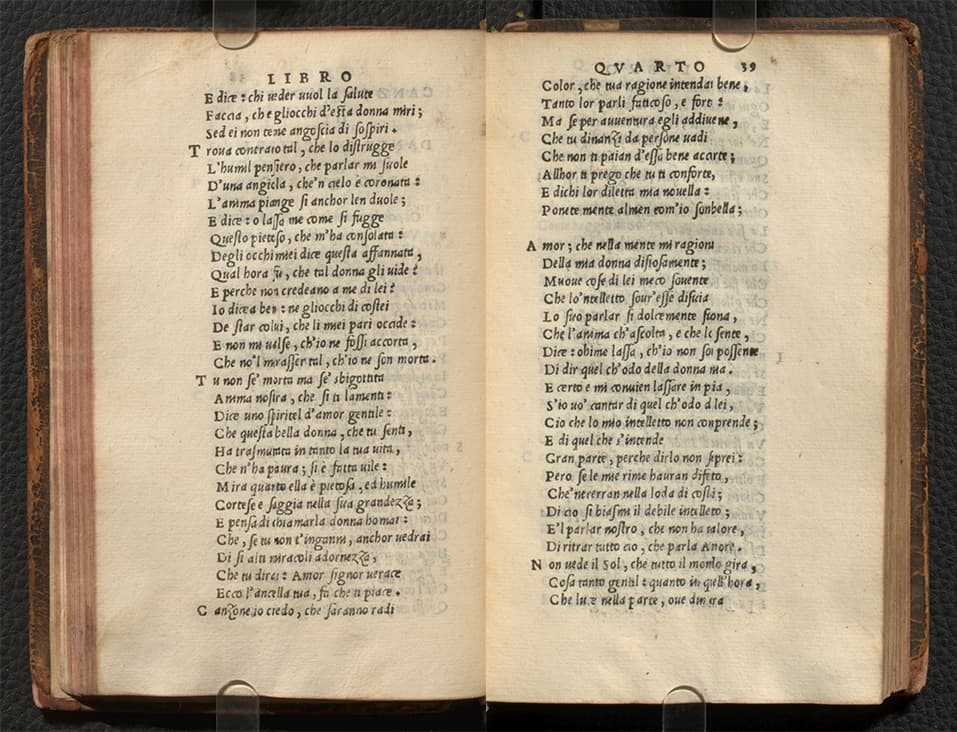 LIBRO
E dice: chi ueder uuol la salute
Faccia, che gliocchi d'esta donna miri;
Sed ei non teme angoscia di sospiri.
Troua contraio tal, che lo distrugge
L'humil pensiero, che parlar mi suole
D'una angiela, che'n cielo è coronata:
L'anima piange si anchor len duole;
E dice: o lassa me come si fugge
Questo pietoso, che m'ha consolata:
Degli occhi miei dice questa affannata,
Qual hora fu, che tal donna gli uide?
E perche non credeano a me di lei?
Io dicea ben: ne gliocchi di costei
De star colui, che li miei pari occide:
E non mi ualse, ch'io ne fossi accorta,
Che no'l mirasser tal, ch'io ne son morta.
Tu non se' morta ma se' sbigottita
Anima nostra, che si ti lamenti:
Dice uno spiritel d'amor gentile:
Che questa bella donna, che tu senti,
Ha trasmutata in tanto la tua uita,
Che n'ha paura; si è fatta uile:
Mira quanto ella è pietosa, ed humile
Cortese e saggia nella sua grandezza;
E pensa di chiamarla donna homai:
Che, se tu non t'inganni, anchor uedrai
Di si alti miracoli adornezza,
Che tu dirai: Amor signor uerace
Ecco l'ancella tua, fa che ti piace.
Canzone io credo, che saranno radi
QVARTO 39
Color, che tua ragione intendai bene,
Tanto lor parli faticoso, e forte:
Ma se per auuentura egli addiuene,
Che tu dinanzi da persone uadi
Che non ti paian d'essa bene acorte;
Allhor ti prego che tu ti conforte,
E dichi lor diletta mia nouella:
Ponete mente almen com'io sonbella;
Amor; che nella mente mi ragioni
Della mia donna disiosamente;
Muoue cose di lei meco souente
Che lo'ntelletto sour'esse disuia
Lo suo parlar si dolcemente siona,
Che l'anima ch'ascolta, e che lo sente,
Dice: ohime lassa, ch'io non soi possente
Di dir quel ch'odo della donna mia.
E certo e mi conuien lassare in pia,
S'io uo' cantar di quel ch'odo d lei,
Cio che lo mio intelletto non conprende;
E di quel che s'intende
Gran parte, perche dirlo non saprei:
Pero se le mie rime hauran difetto,
Che'nterran nella loda di costei;
Di cio si biasmi il debile intelletto;
E'l parlar nostro, che non ha ualore,
Di ritrar tutto cio, che parla Amore.
Non uede il Sol, che tutto il mondo gira,
Cosa tanto gentil: quanto in quell'hora,
Che luce nella parte, oue dimora